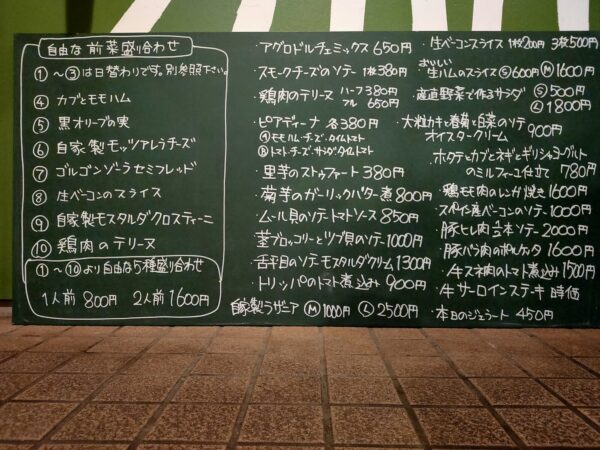 自由な前菜盛り合わせ
①～③は日替わりです。別参照下さい。
④ カブとモモハム
⑤ 黒オリーブの実
⑥ 自家製モッツァレラチーズ
⑦ ゴルゴンゾーラセミフレッド
⑧ 生ベーコンのスライス
⑨ 自家製モスタルダクロスティーニ
⑩ 鶏肉のテリーヌ
①～⑩より自由な5種盛り合わせ
1人前 800円 2人前 1600円
・アグロドルチェミックス 650円
・スモークチーズのソテー 1枚380円
・鶏肉のテリーヌ ハーフ 380円
フル 650円
・ピアディーナ 各380円
Ⓐモモハム・チーズ・タイムトマト
Ⓑトマト・チーズ・サラダ・タイムトマト
・里芋のストゥファート 380円
・菊芋のガーリックバター煮 800円
・ムール貝のソテートマトソース 850円
・茎ブロッコリーとツブ貝のソテー 1000円
・舌平目のソテーモスタルダクリーム 1300円
・トリッパのトマト煮込み 900円
自家製ラザニア Ⓜ1000円 Ⓛ2500円
・生ベーコンスライス 1枚200円 3枚500円
おいしい
・生ハムのスライス Ⓢ600円 Ⓜ1600円
・産直野菜で作るサラダ Ⓢ500円
Ⓛ1800円
・大粒カキと春菊と白菜のソテー
オイスタークリーム 900円
・ホタテとカブとネギとギリシャヨーグルト
のミルフィーユ仕立て 780円
・鶏モモ肉のレンガ焼き 1600円
・スペイン産ベーコンのソテー 1000円
・豚ヒレ肉1本ソテー 2000円
・豚バラ肉のポルケッタ 1600円
・牛スネ肉のトマト煮込み 1500円
・牛サーロインステーキ 時価
・本日のジェラート 450円